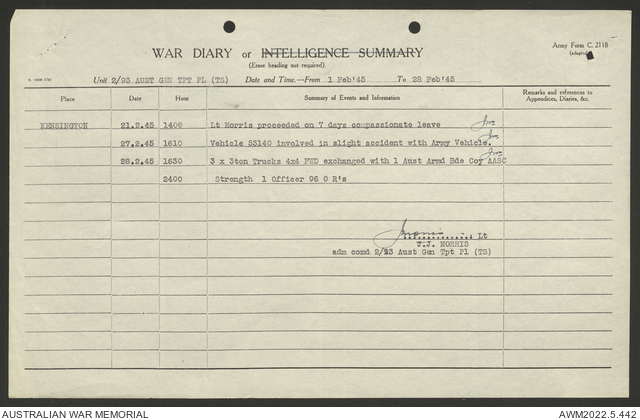 Army Form C. 2118
(adapted)
WAR DIARY or INTELLIGENCE SUMMARY
(Erase heading not required).
Unit 2/93 AUST GEN TPT PL (TS) Date and Time.—From 1 Feb'45 To 28 Feb'45
Place Date Hour Summary of Events and Information Remarks and references to Appendices, Diaries, &c.
KENSINGTON 21.2.45 1400 Lt Morris proceeded on 7 days compassionate leave
27.2.45 1610 Vehicle 53140 involved in slight accident with Army Vehicle.
28.2.45 1630 3 x 3ton Trucks 4x4 FWD exchanged with 1 Aust Armd Bde Coy AASC
2400 Strength 1 Officer 96 O R's
Lt
J.J. MORRIS
adm comd 2/93 Aust Gen Tpt Pl (TS)
AUSTRALIAN WAR MEMORIAL
AWM2022.5.442